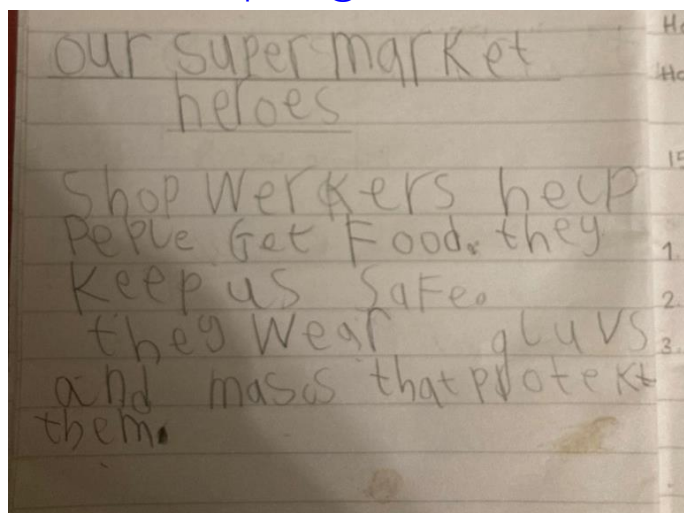 our super market
heroes
Shop Werkers help
PePle Get Food. they
Keep us SaFe.
they Wear gluvs
and mascs that protekt
them.
Ho
Ho
15
1.
2.
3.